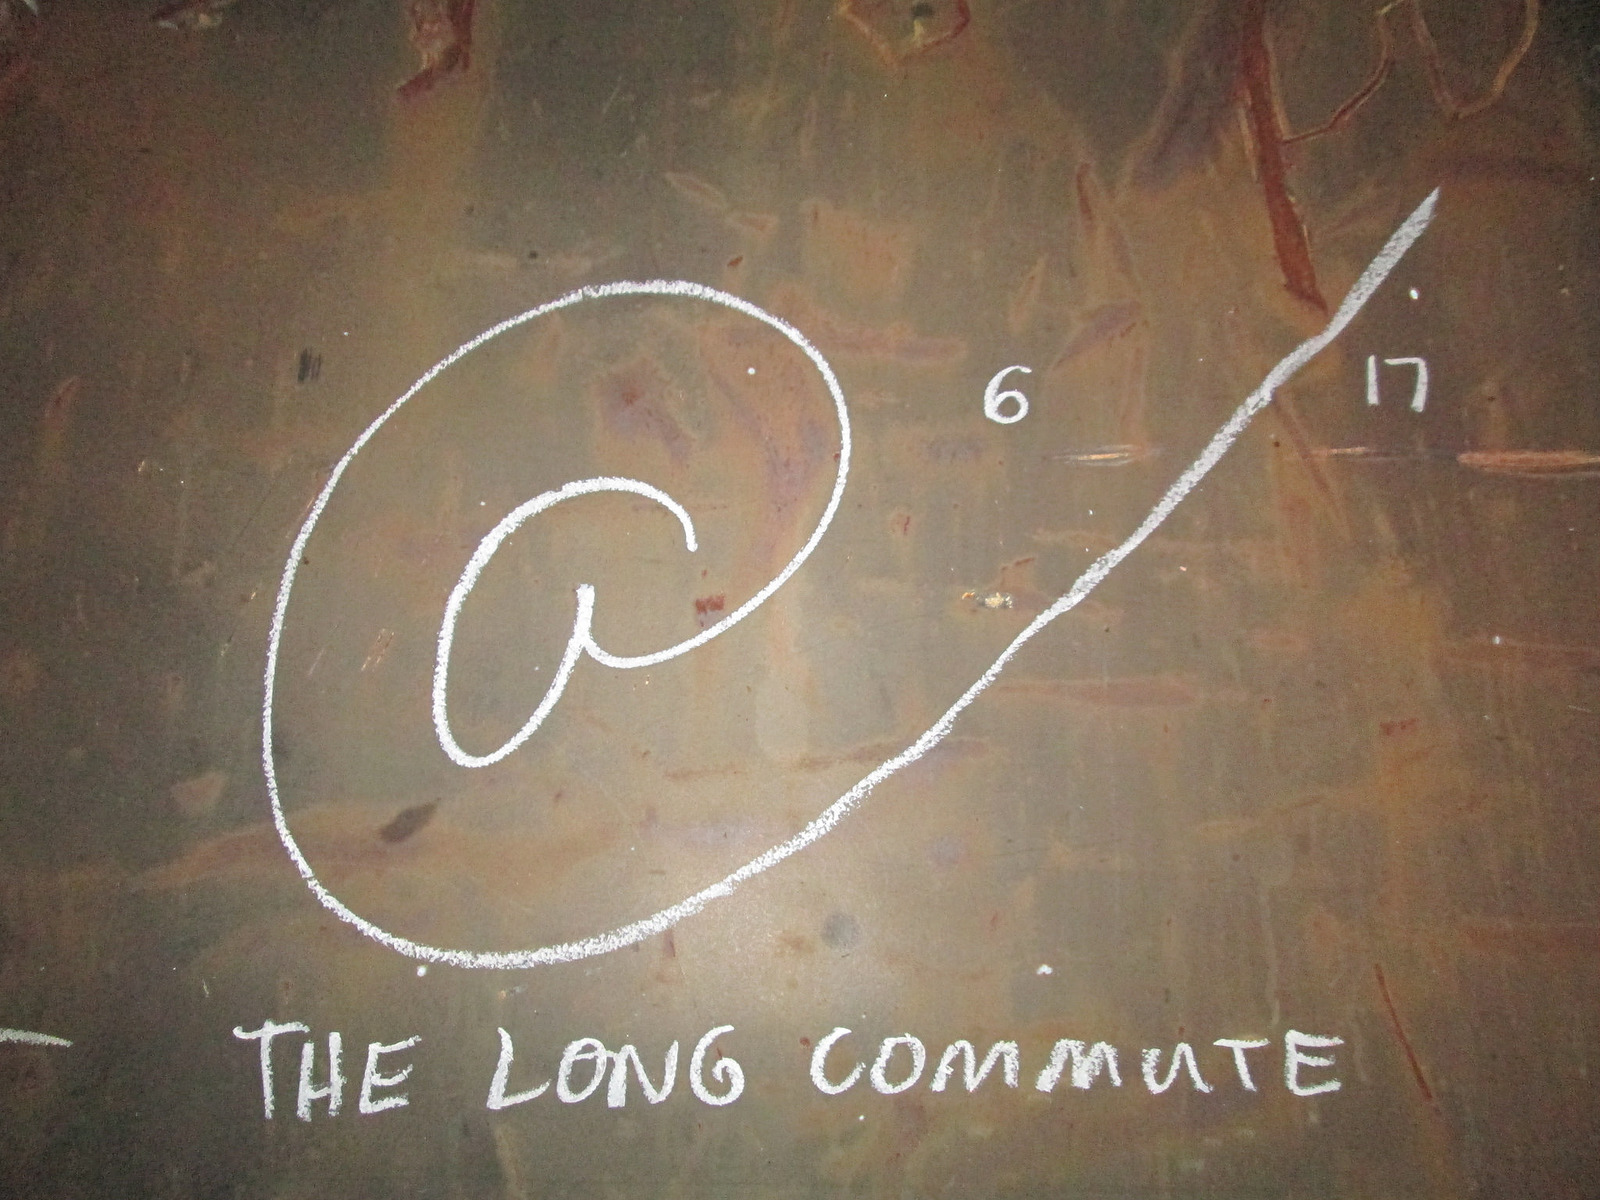 6 17
@
THE LONG COMMUTE